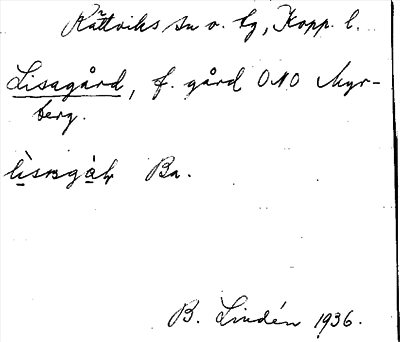 Rättviks sn o. tg, Kopp. l.
Lisagård, f. gård ONO Myr-
berg.
Ba.
B. Lindén 1936.